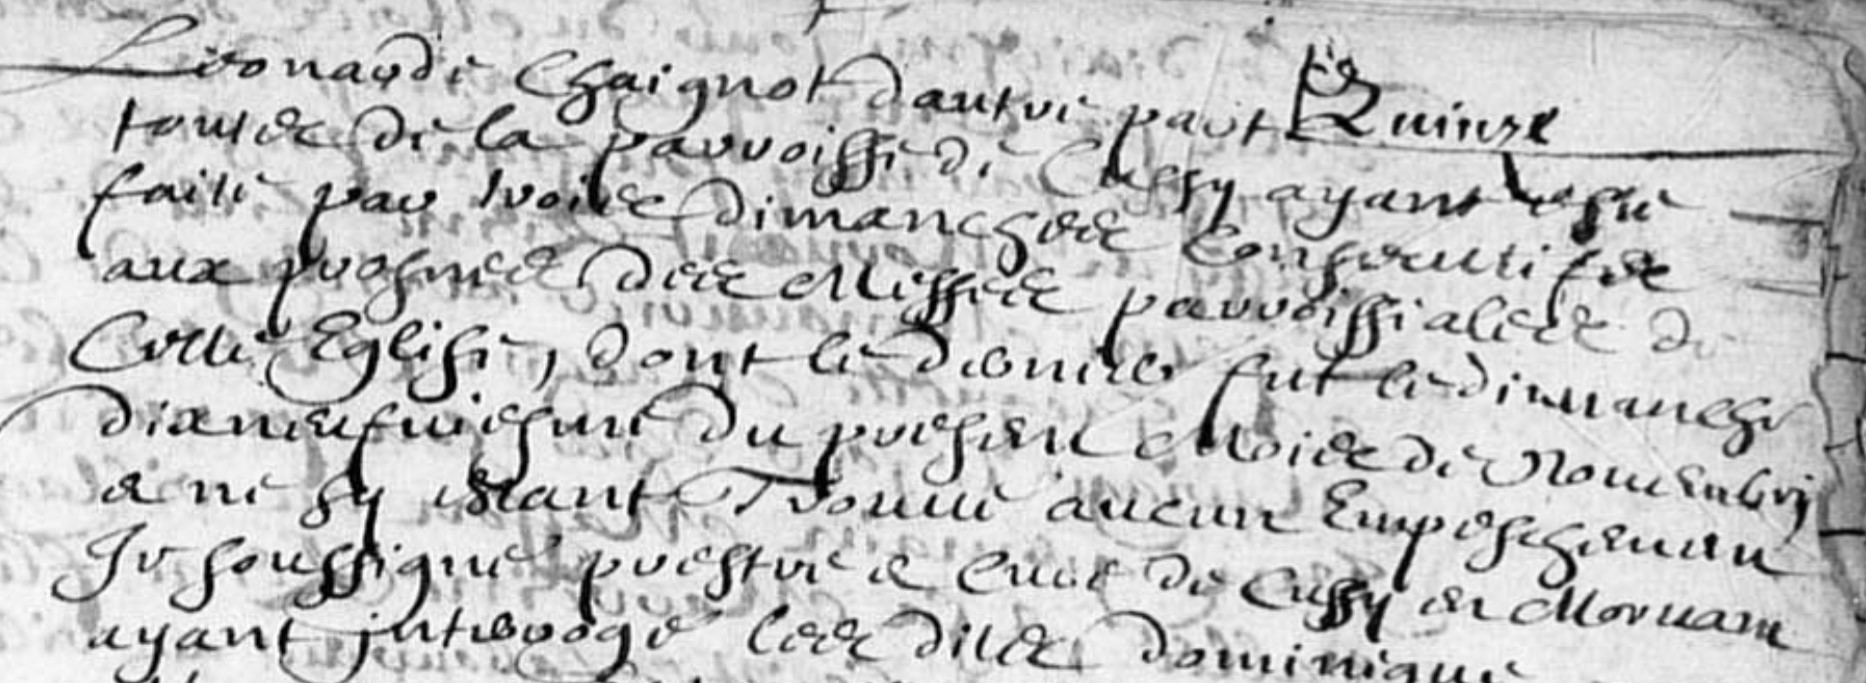 Leonarde Chaignot dautre part Quinze
toutes de la parroisse de Cussy ayant esté
faite par trois dimanches consecutifes
aux prosnes des Messes parroissiales de
Cette Eglise, dont le dernier fut le dimanche
dixneufuiesme du present Mois de Nouembre
& ne sy estant Trouué aucun Empeschement
Je soussigné prestre & Curé de Cussy en Moruant
ayant interrogé les dites dominique